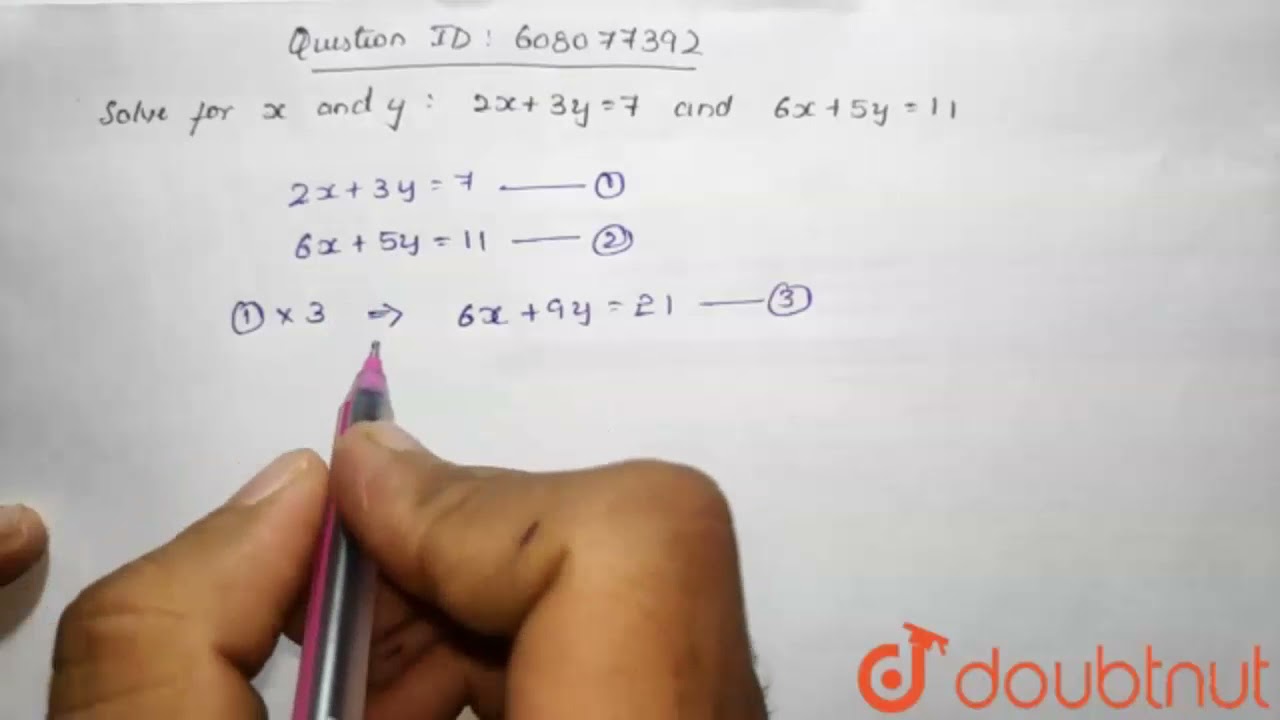 Question ID: 608077392
Solve for x and y: 2x+3y=7 and 6x+5y=11
2x+3y=7 —— ①
6x+5y=11 —— ②
①×3 ⇒ 6x+9y=21 —— ③
doubtnut